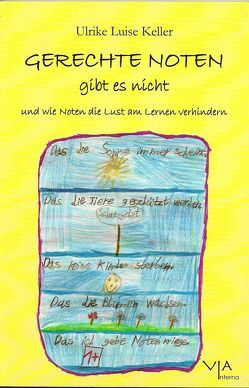 Ulrike Luise Keller
GERECHTE NOTEN
gibt es nicht
und wie Noten die Lust am Lernen verhindern
Das die Sonne immer scheint.
Das die Tiere geschützt werden.
Das keine Kinder sterben.
Das die Blumen wachsen.
Das ich gute Noten kriege.
1+
VIA
Interna